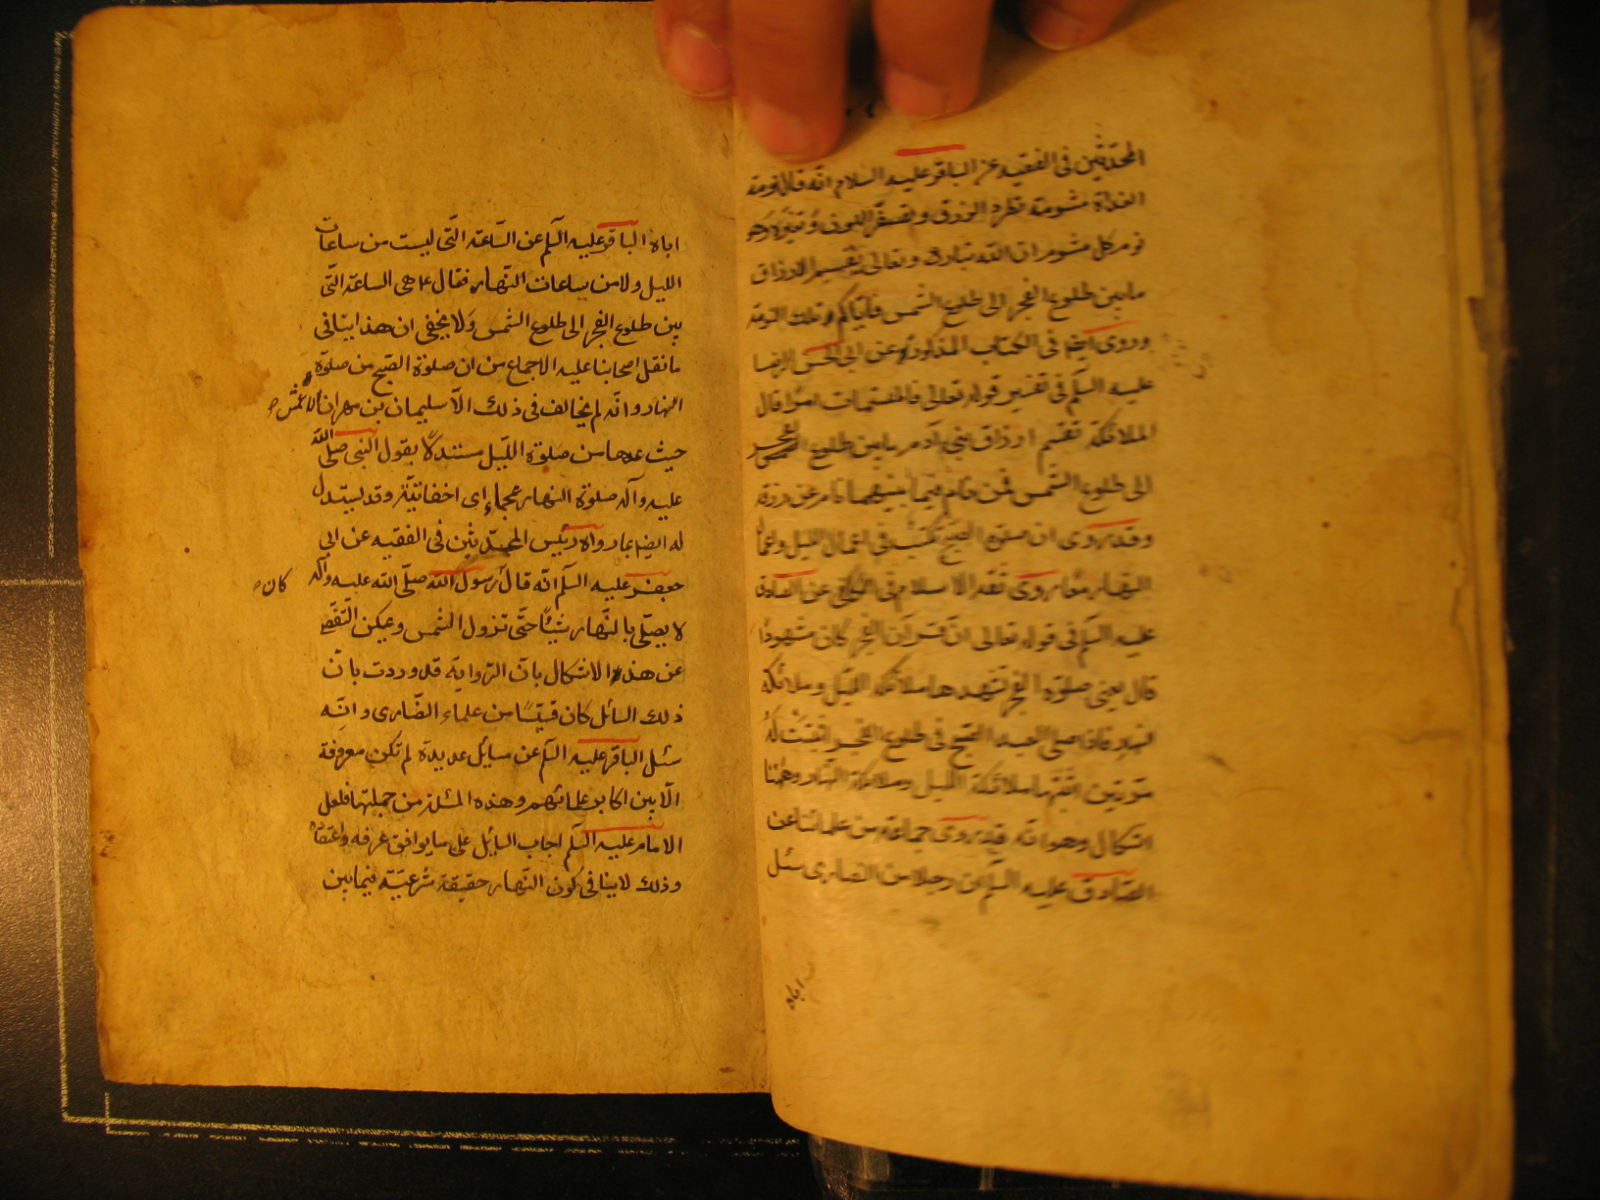 المحدّثين فى الفقيه عن الباقر عليه السلام انّه قال نومة
الغداة مشومة تطرد الرزق وتصفّر اللون وتغيّره وهو
نوم كل مشوم ان الله تبارك وتعالى يقسم الارزاق
مابين طلوع الفجر الى طلوع الشمس فاياكم وتلك النومة
وروى ايضا فى الكتاب المذكور عن ابى الحسن الرضا
عليه السلم فى تفسير قوله تعالى فالمقسمات امرا قال
الملائكة تقسم ارزاق بنى آدم مابين طلوع الفجر
الى طلوع الشمس فمن نام فيما بينهما نام عن رزقه
وقد روى ان صلوة الصبح تكتب فى اعمال الليل واعمال
النهار معا روى ثقة الاسلام فى الكافى عن الصادق
عليه السلم فى قوله تعالى انّ قرآن الفجر كان مشهودا
قال يعنى صلوة الفجر تشهدها ملائكة الليل وملائكة
النهار فاذا صلى العبد الصبح فى طلوع الفجر اثبتت له
مرّتين اثبتها ملائكة الليل وملائكة النهار وههنا
اشكال وهو انّه قد روى جماعة من علمائنا عن
الصّادق عليه السلم ان رجلا من النصارى سئل
اباه
اباه الباقر عليه السلم عن السّاعة الّتى ليست من ساعات
الليل ولا من ساعات النّهار فقال ٤ هى الساعة الّتى
بين طلوع الفجر الى طلوع الشمس ولا يخفى ان هذا ينافى
مانقل اصحابنا عليه الاجماع من ان صلوة الصبح من صلوة
النهار وانّه لم يخالف فى ذلك الّا سليمان بن مهران الاعمش
حيث عدها من صلوة اللّيل مستندلاً بقول النبى صلى الله
عليه وآله صلوة النهار عجماء اى اخفاتيّة وقد يستدل
له ايضا بما رواه رئيس المحدّثين فى الفقيه عن ابى
جعفر عليه السلم انّه قال رسول الله صلّى الله عليه وآله
كان
لا يصلّى بالنّهار شيئاً حتّى تزول الشمس ويمكن التّفصّى
عن هذه الاشكال بانّ الرّواية قد وردت بانّ
ذلك السائل كان قسّيسًا من علماء النّصارى وانّه
سئل الباقر عليه السلم عن مسايل عديدة لم تكن معروفة
الّا بين اكابر علمائهم وهذه المسئلة من جملتها فلعل
الامام عليه السلم اجاب السايل على مايوافق عرفه واعتقاده
وذلك لاينافى كون النّهار حقيقة شرعيّة فيمابين